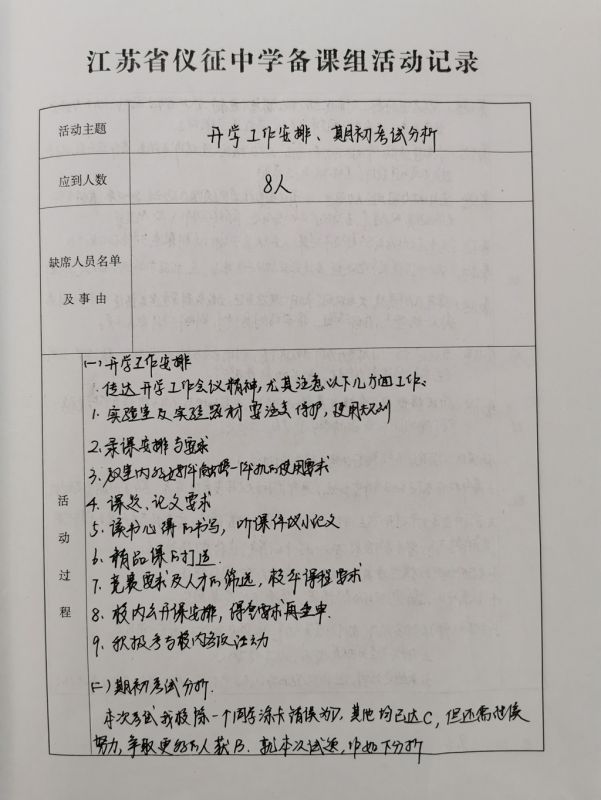 江苏省仪征中学备课组活动记录
活动主题
开学工作安排、期初考试分析
应到人数
8人
缺席人员名单
及事由
活动过程
(一)开学工作安排
传达开学工作会议精神,尤其注意以下几方面工作:
1. 实验室及实验器材要注意保护,使用规则
2. 录课安排与要求
3. 教室内触摸一体机的使用要求
4. 课题、论文要求
5. 读书心得的书写,听课评议小论文
6. 精品课的打造.
7. 竞赛要求及人才的筛选,校本课程要求
8. 校内公开课安排,得当要求再重申.
9. 积极参与校内活动
(二)期初考试分析.
本次考试我校除一个同学涂卡错误为D,其他均已达C,但还需继续
努力,争取更多的人获B. 就本次试题,作如下分析